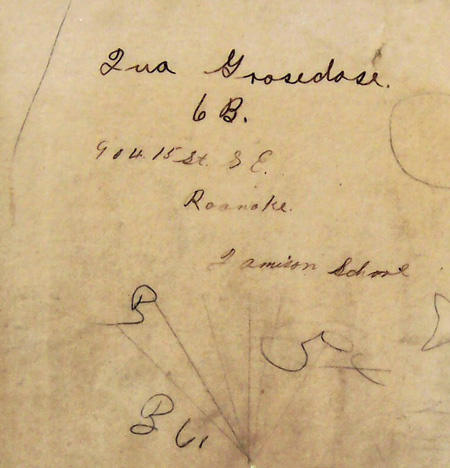 Iva Grosedose.
6 B.
904. 15 St. S E.
Roanoke.
Jamison School
B
B 6